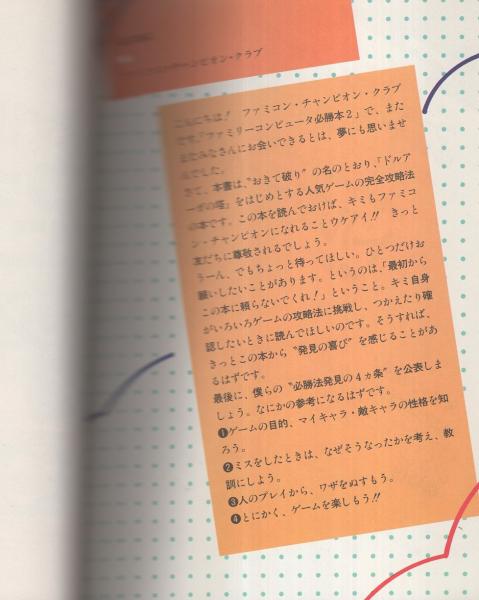 チャンピオン・クラブ
こんにちは! ファミコン・チャンピオン・クラブ
です。「ファミリーコンピュータ必勝本2」で、また
またみなさんにお会いできるとは、夢にも思いませ
んでした。
さて、本書は、〝おきて破り〟の名のとおり、「ドルア
ーガの塔」をはじめとする人気ゲームの完全攻略法
の本です。この本を読んでおけば、キミもファミコ
ン・チャンピオンになれることウケアイ!! きっと
友だちに尊敬されるでしょう。
うーん、でもちょっと待ってほしい。ひとつだけお
願いしたいことがあります。というのは、「最初から
この本に頼らないでくれ!」ということ。キミ自身
がいろいろゲームの攻略法に挑戦し、つかえたり確
認したいときに読んでほしいのです。そうすれば、
きっとこの本から〝発見の喜び〟を感じることがあ
るはずです。
最後に、僕らの〝必勝法発見の4ヵ条〟を公表しま
しょう。なにかの参考になるはずです。
❶ゲームの目的、マイキャラ・敵キャラの性格を知
ろう。
❷ミスをしたときは、なぜそうなったかを考え、教
訓にしよう。
❸人のプレイから、ワザをぬすもう。
❹とにかく、ゲームを楽しもう!!